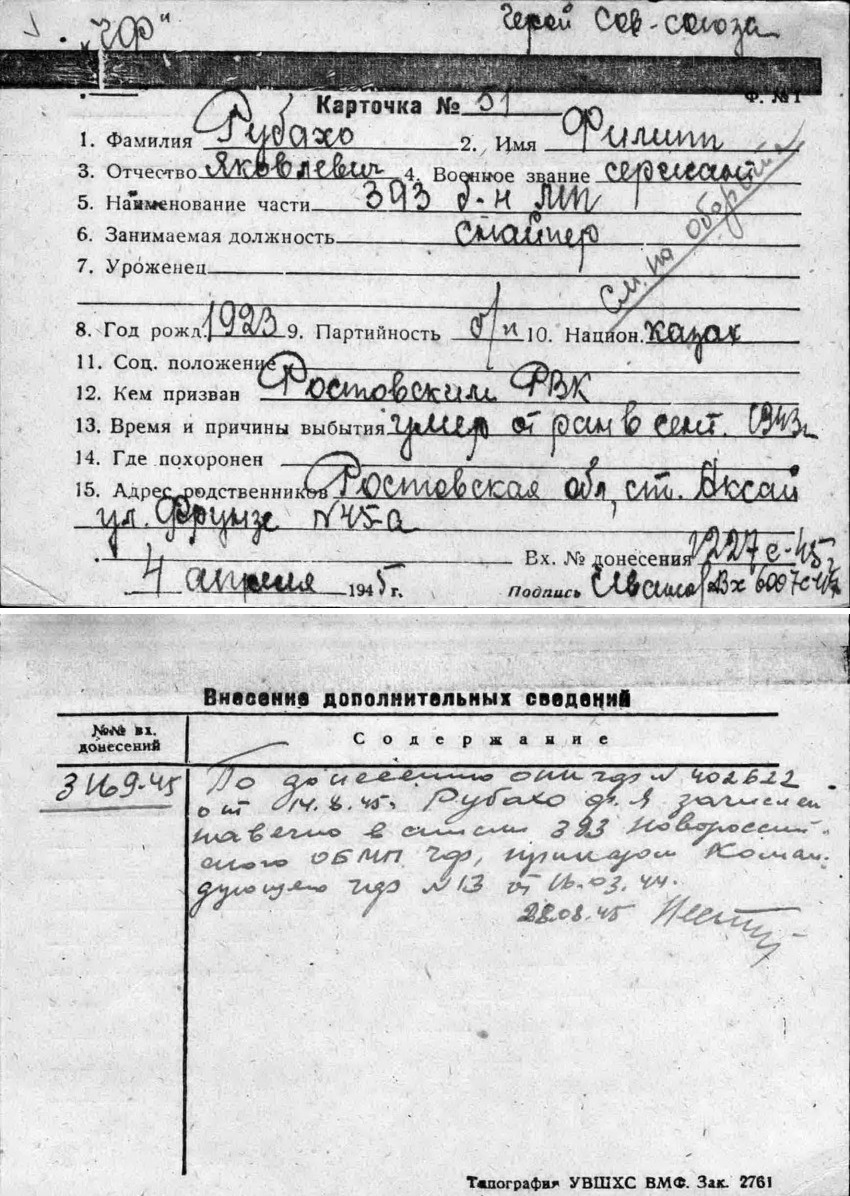 "ЧФ" Герой Сов-союза
Ф. №1
Карточка № 51
1. Фамилия Рубахо 2. Имя Филипп
3. Отчество Яковлевич 4. Военное звание сержант
5. Наименование части 393 б-н МП
6. Занимаемая должность снайпер
7. Уроженец
См. на обороте
8. Год рожд. 1923 9. Партийность б/п 10. Национ. казак
11. Соц. положение
12. Кем призван Ростовским РВК
13. Время и причины выбытия умер от ран в сент. 1943г.
14. Где похоронен
15. Адрес родственников Ростовская обл, ст. Аксай
ул. Фрунзе N 45-а
Вх. № донесения 1227с-45г
4 апреля 1945 г. Подпись Вх 6007с-45
Внесение дополнительных сведений
№№ вх. донесений
Содержание
3169-45 По донесению ЧФ N 402622
от 14.8.45г. Рубахо Ф.Я зачислен
навечно в списки 393 Новороссий-
ского ОБМП ЧФ, приказом Коман-
дующего ЧФ N 13 от 16.03.44.
28.08.45
Типография УВШХС ВМФ. Зак. 2761